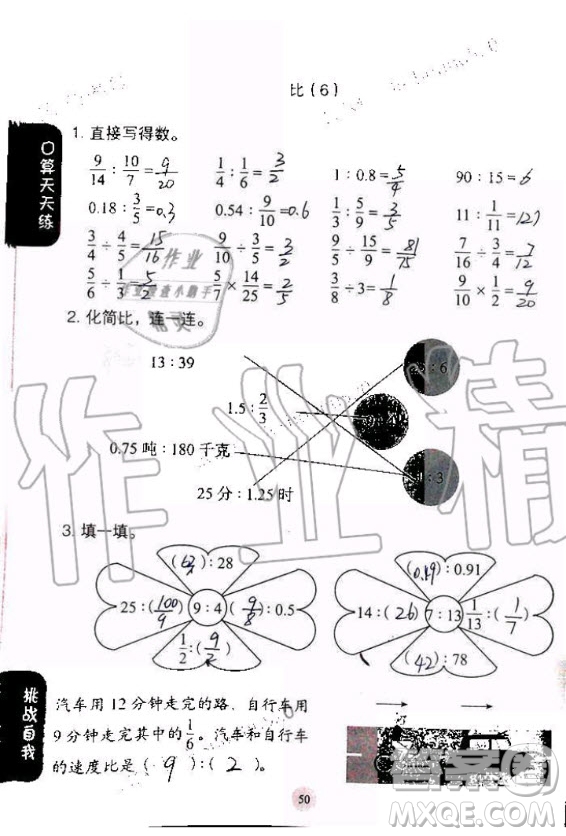 比(6)
口算天天练
1. 直接写得数。
9/14 : 10/7 = 9/20 1/4 : 1/6 = 3/2 1 : 0.8 = 5/4 90 : 15 = 6
0.18 : 3/5 = 0.3 0.54 : 9/10 = 0.6 1/3 : 5/9 = 3/5 11 : 1/11 = 121
3/4 ÷ 4/5 = 15/16 9/10 ÷ 3/5 = 3/2 9/5 ÷ 15/9 = 81/15 7/16 ÷ 3/4 = 7/12
5/6 ÷ 1/3 = 5/2 5/7 × 14/25 = 2/5 3/8 ÷ 3 = 1/8 9/10 × 1/2 = 9/20
2. 化简比，连一连。
13 : 39
25 : 6
1.5 : 2/3
0.75 吨 : 180 千克
1 : 3
25 分 : 1.25 时
3. 填一填。
(63) : 28 (0.49) : 0.91
25 : (100/9) 9 : 4 (9/8) : 0.5 14 : (26) 7 : 13 1/13 : (1/7)
1/2 : (9/2) (42) : 78
挑战自我
汽车用 12 分钟走完的路，自行车用
9 分钟走完其中的 1/6。汽车和自行车
的速度比是 (9) : (2)。
50
作业精
答案圈
MXQE.COM